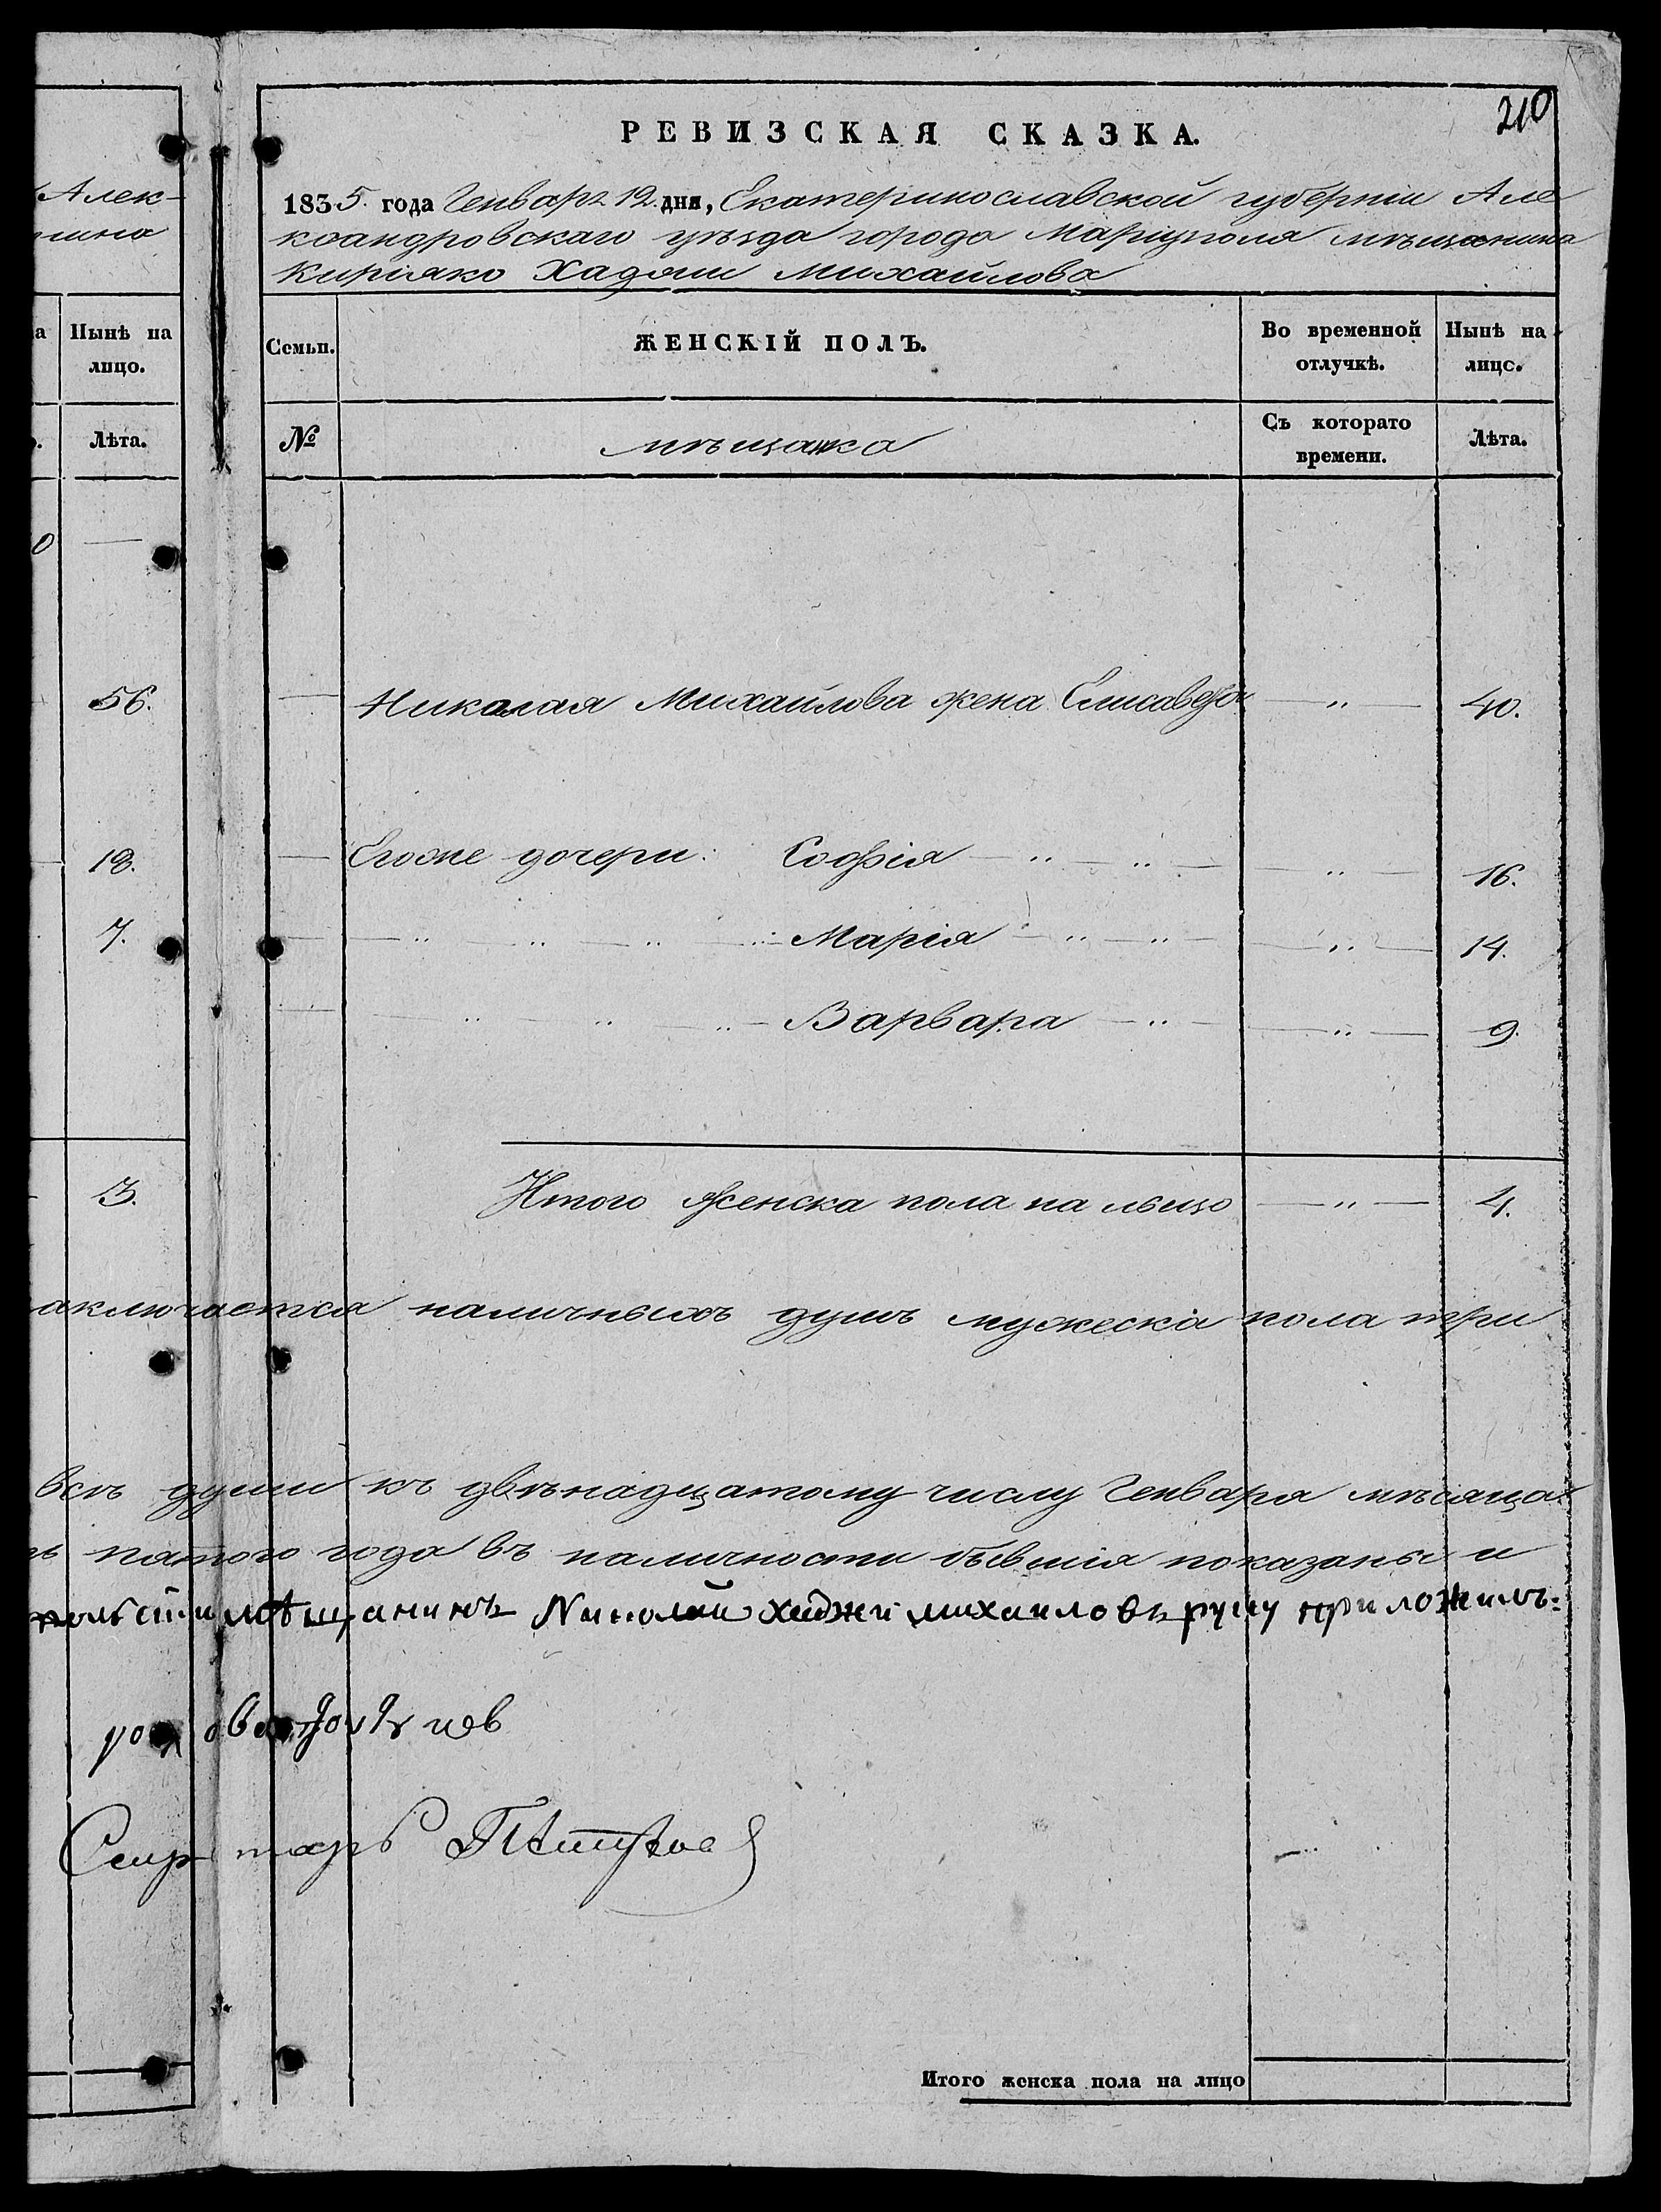 210
РЕВИЗСКАЯ СКАЗКА.
1835. года Генваря 12. дня, Екатеринославской губерніи Але
ксандровскаго уѣзда города Маріуполя мѣщанина
Киріяко Хаджи Михайлова
Алек-
Семьи.
ЖЕНСКІЙ ПОЛЪ.
Во временной отлучкѣ.
Нынѣ на лицо.
Нынѣ на лицо.
№
мѣщанка
Съ котораго времени.
Лѣта.
Лѣта.
0
56. Николая Михайлова жена Елисавефа — " — 40.
18. Егоже дочери: Софія — " — " — " — 16.
7. — " — " — " — " — Марія — " — " — " — 14.
— " — " — " — Варвара — " — " — 9.
3. Итого женска пола на лицо — " — 4.
аключается наличныхъ душъ мужеска пола три
всѣ души къ двѣнадцатому числу Генваря мѣсяца
пятого года въ наличности бывшія показаны и
польскій мѣщанинъ Николай хаджи михаиловъ руку приложилъ:
Итого женска пола на лицо